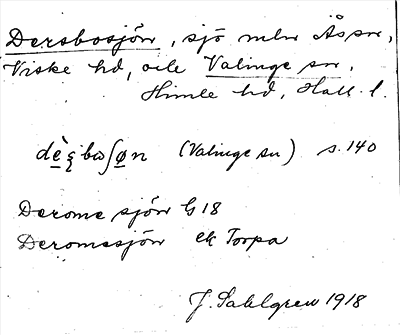 Dersbosjön, sjö mln Ås sn,
Viske hd, och Valinge sn,
Himle hd, Hall. l.
(Valinge sn) s. 140
Derome sjön G 18
Deromesjön ek Torpa
J. Sahlgren 1918